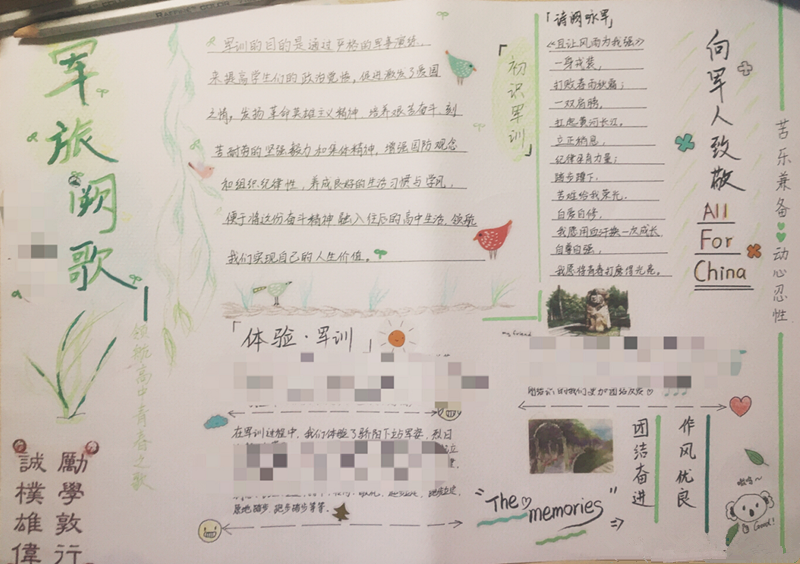 军旅阙歌
领航高中青春之歌
誠樸雄偉
勵學敦行
军训的目的是通过严格的军事演练,
来提高学生们的政治觉悟,促进激发了爱国
之情。发扬革命英雄主义精神,培养艰苦奋斗、刻
苦耐劳的坚强毅力和集体精神,增强国防观念
和组织纪律性,养成良好的生活习惯与学风,
便于情这份奋斗精神融入往后的高中生活,领航
我们实现自己的人生价值。
「初识军训」
「诗阙咏军」
《且让风雨为我强》
一身戎装,
打败春雨秋霜;
一双肩膀,
扛起黄河长江。
立正稍息,
纪律是有力量;
踏步蹲下,
苦难给我荣光。
自尊自修,
我愿用血汗换一次成长
自尊自强,
我愿将青春打磨得光亮。
向军人致敬
All
For
China
苦乐兼备
动心忍性
「体验·军训」
my friend
在军训过程中,我们体验了骄阳下站军姿,烈日
原地踏步、跑步踏步等等。
"The memories"
团结奋进
作风优良